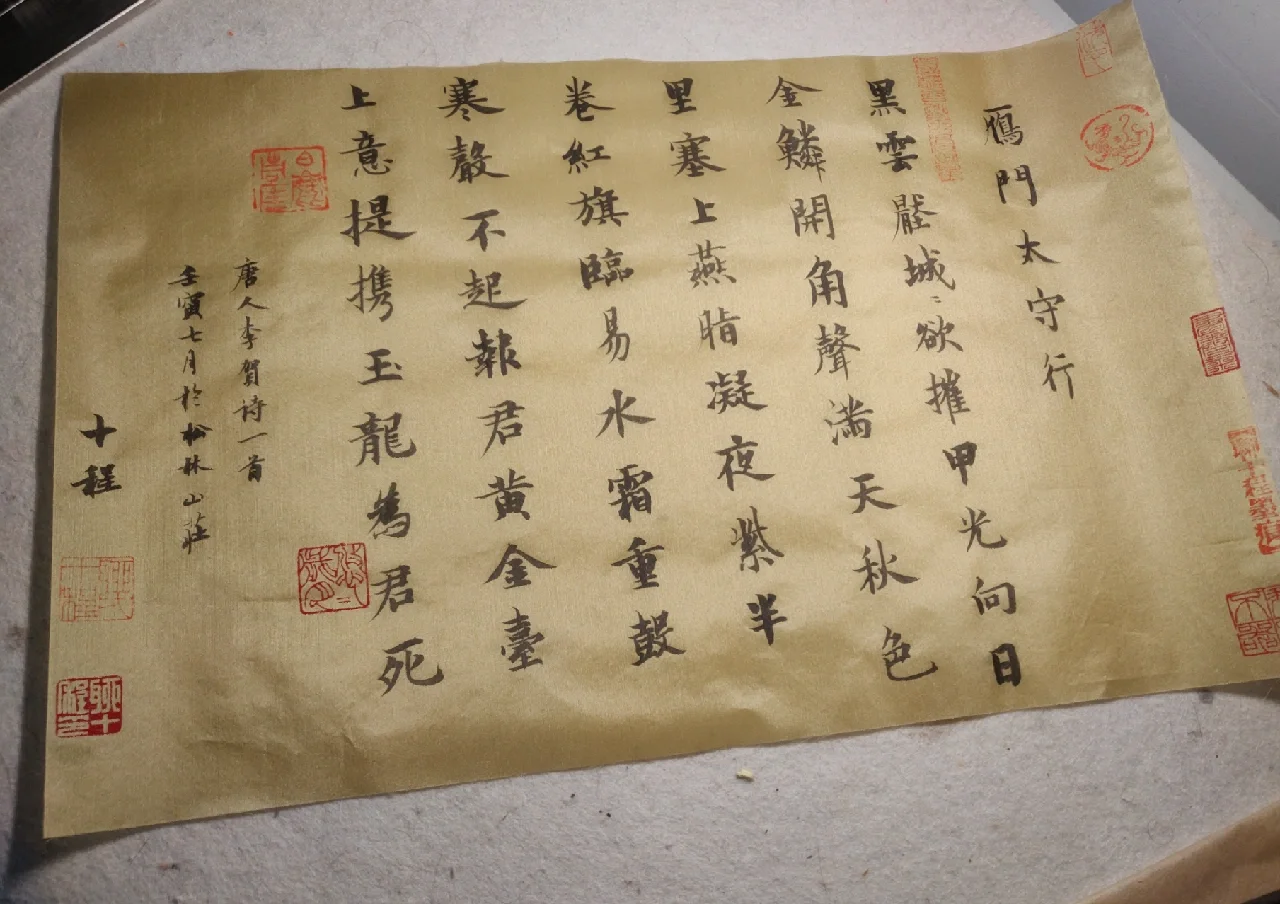 鴈門太守行
黑雲壓城〻欲摧甲光向日
金鱗開角聲滿天秋色
里塞上燕脂凝夜紫半
卷紅旗臨易水霜重鼓
寒聲不起報君黃金臺
上意提携玉龍為君死
唐人李賀诗一首
壬寅七月於松林山莊
十程